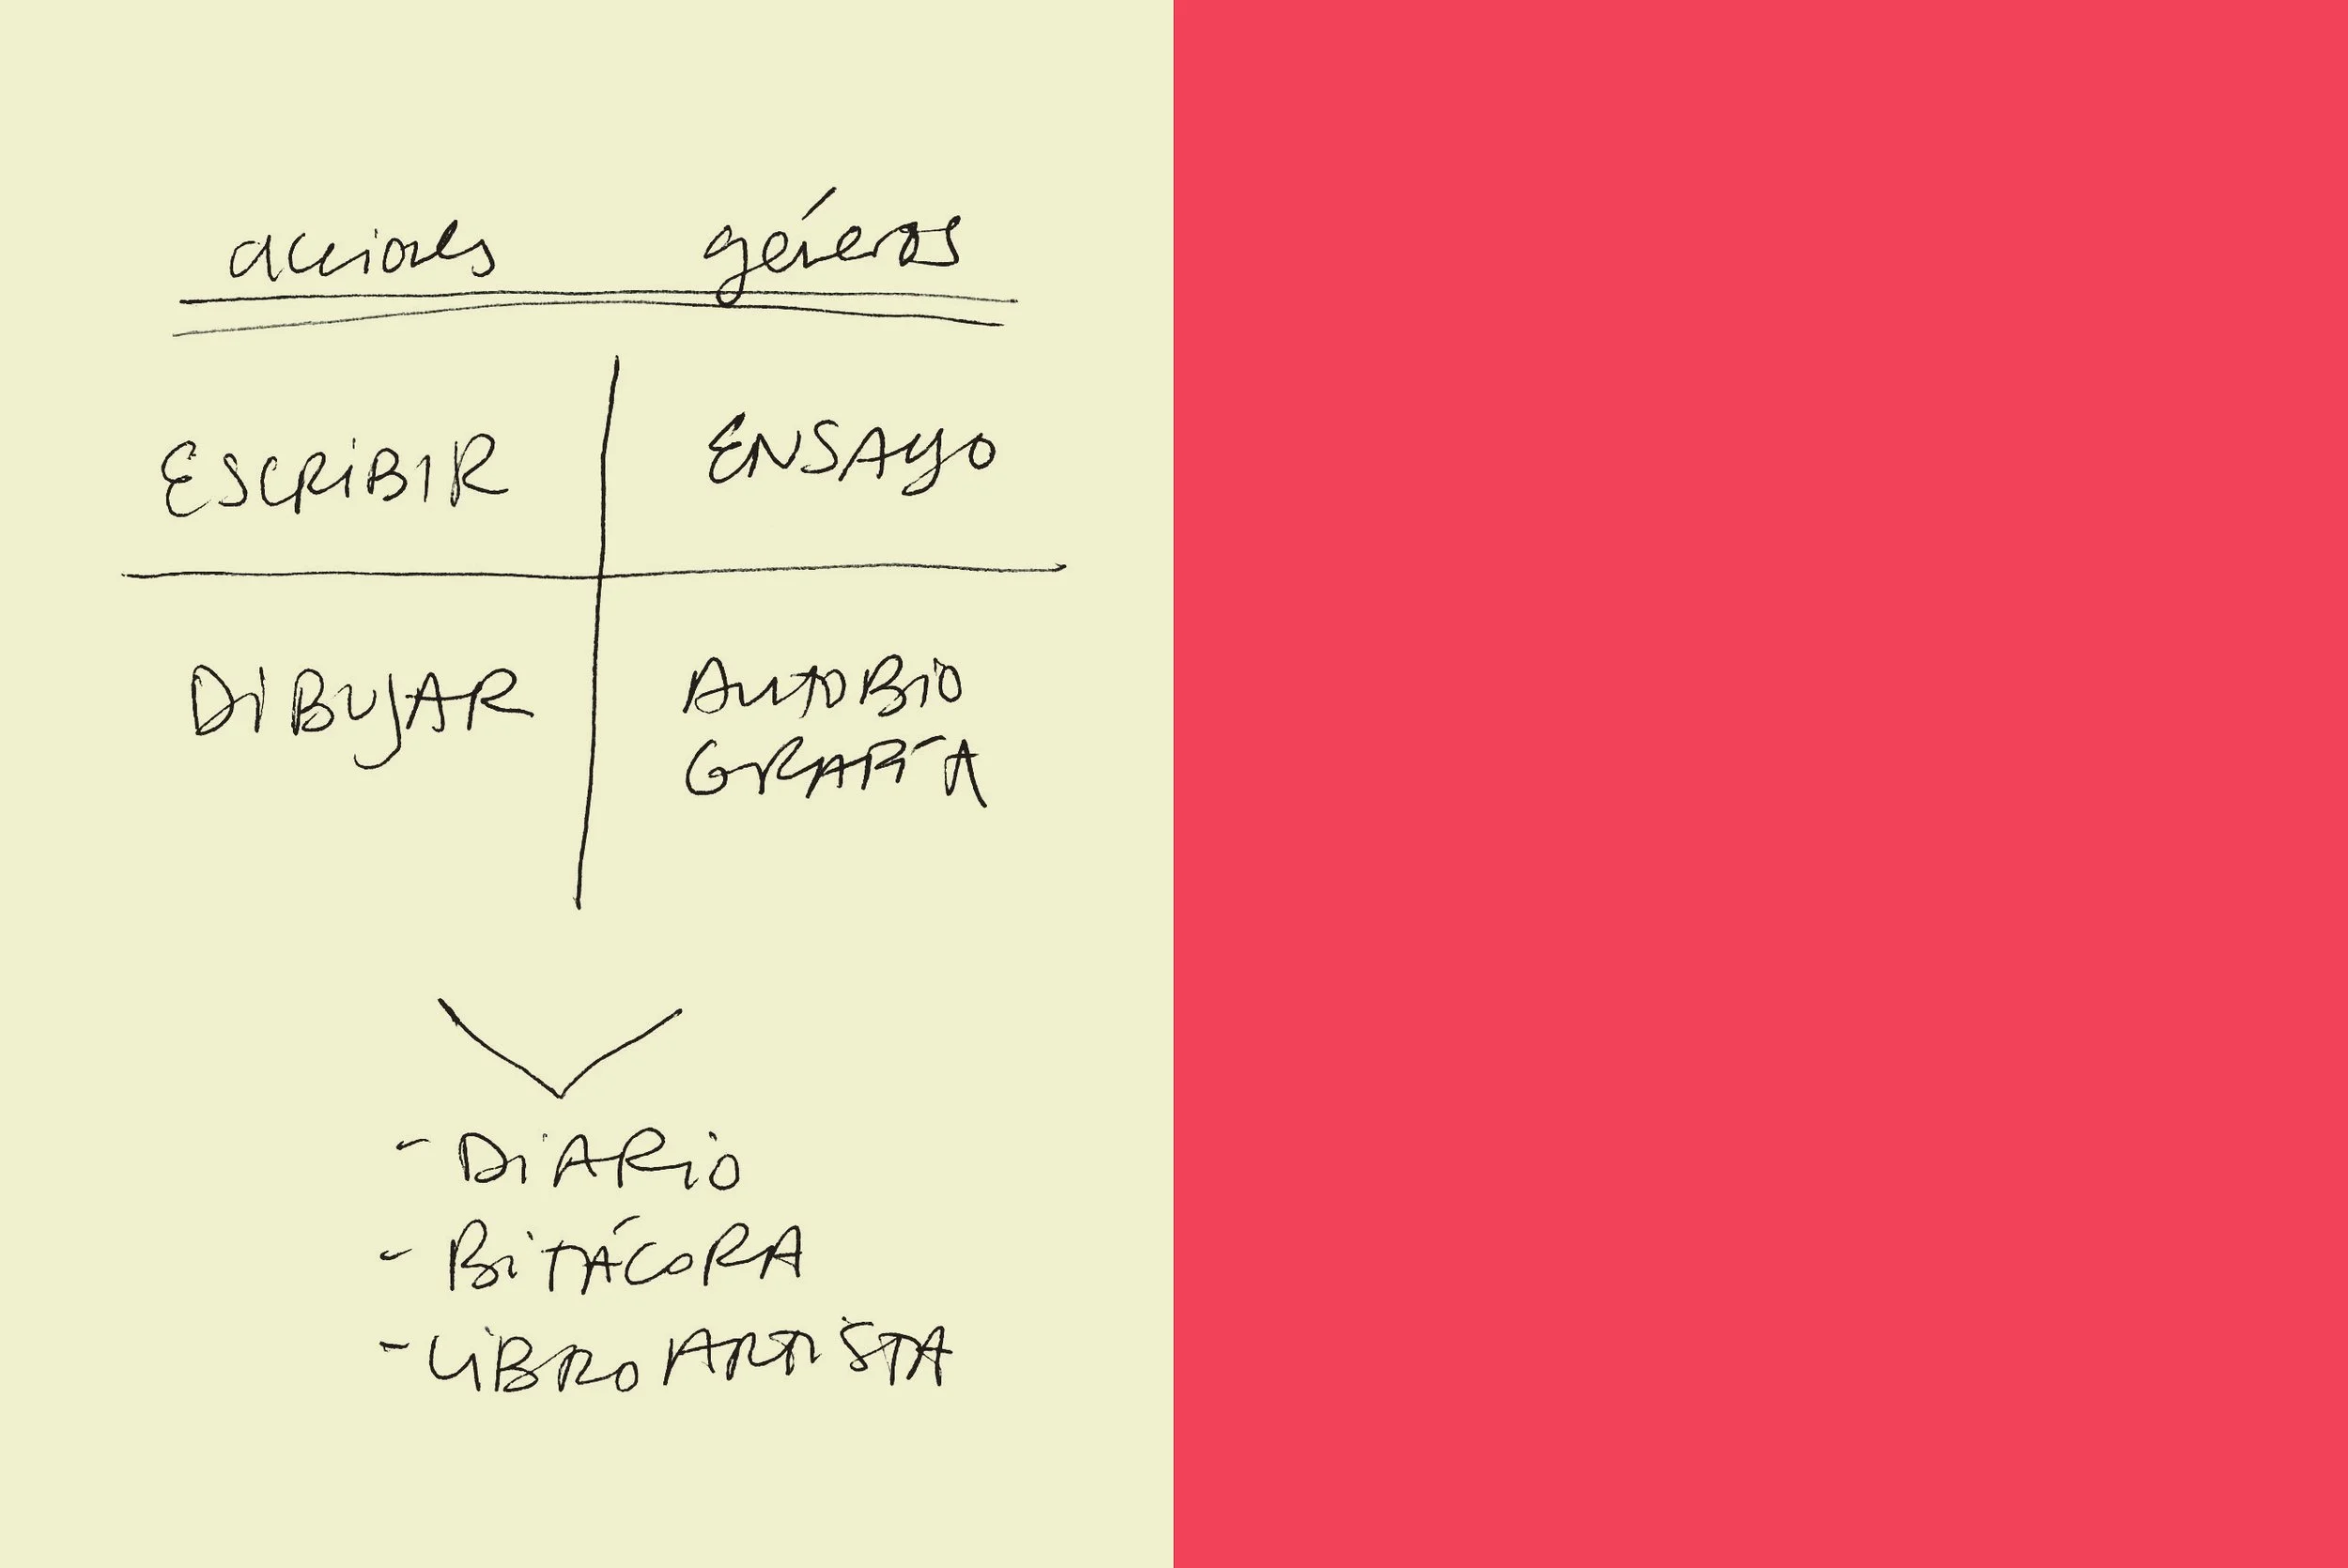 acciones géneros
ESCRIBIR ENSAYO
DIBUJAR AUTOBIO
GRAFÍA
- DIARIO
- BITÁCORA
- LIBRO ARTISTA